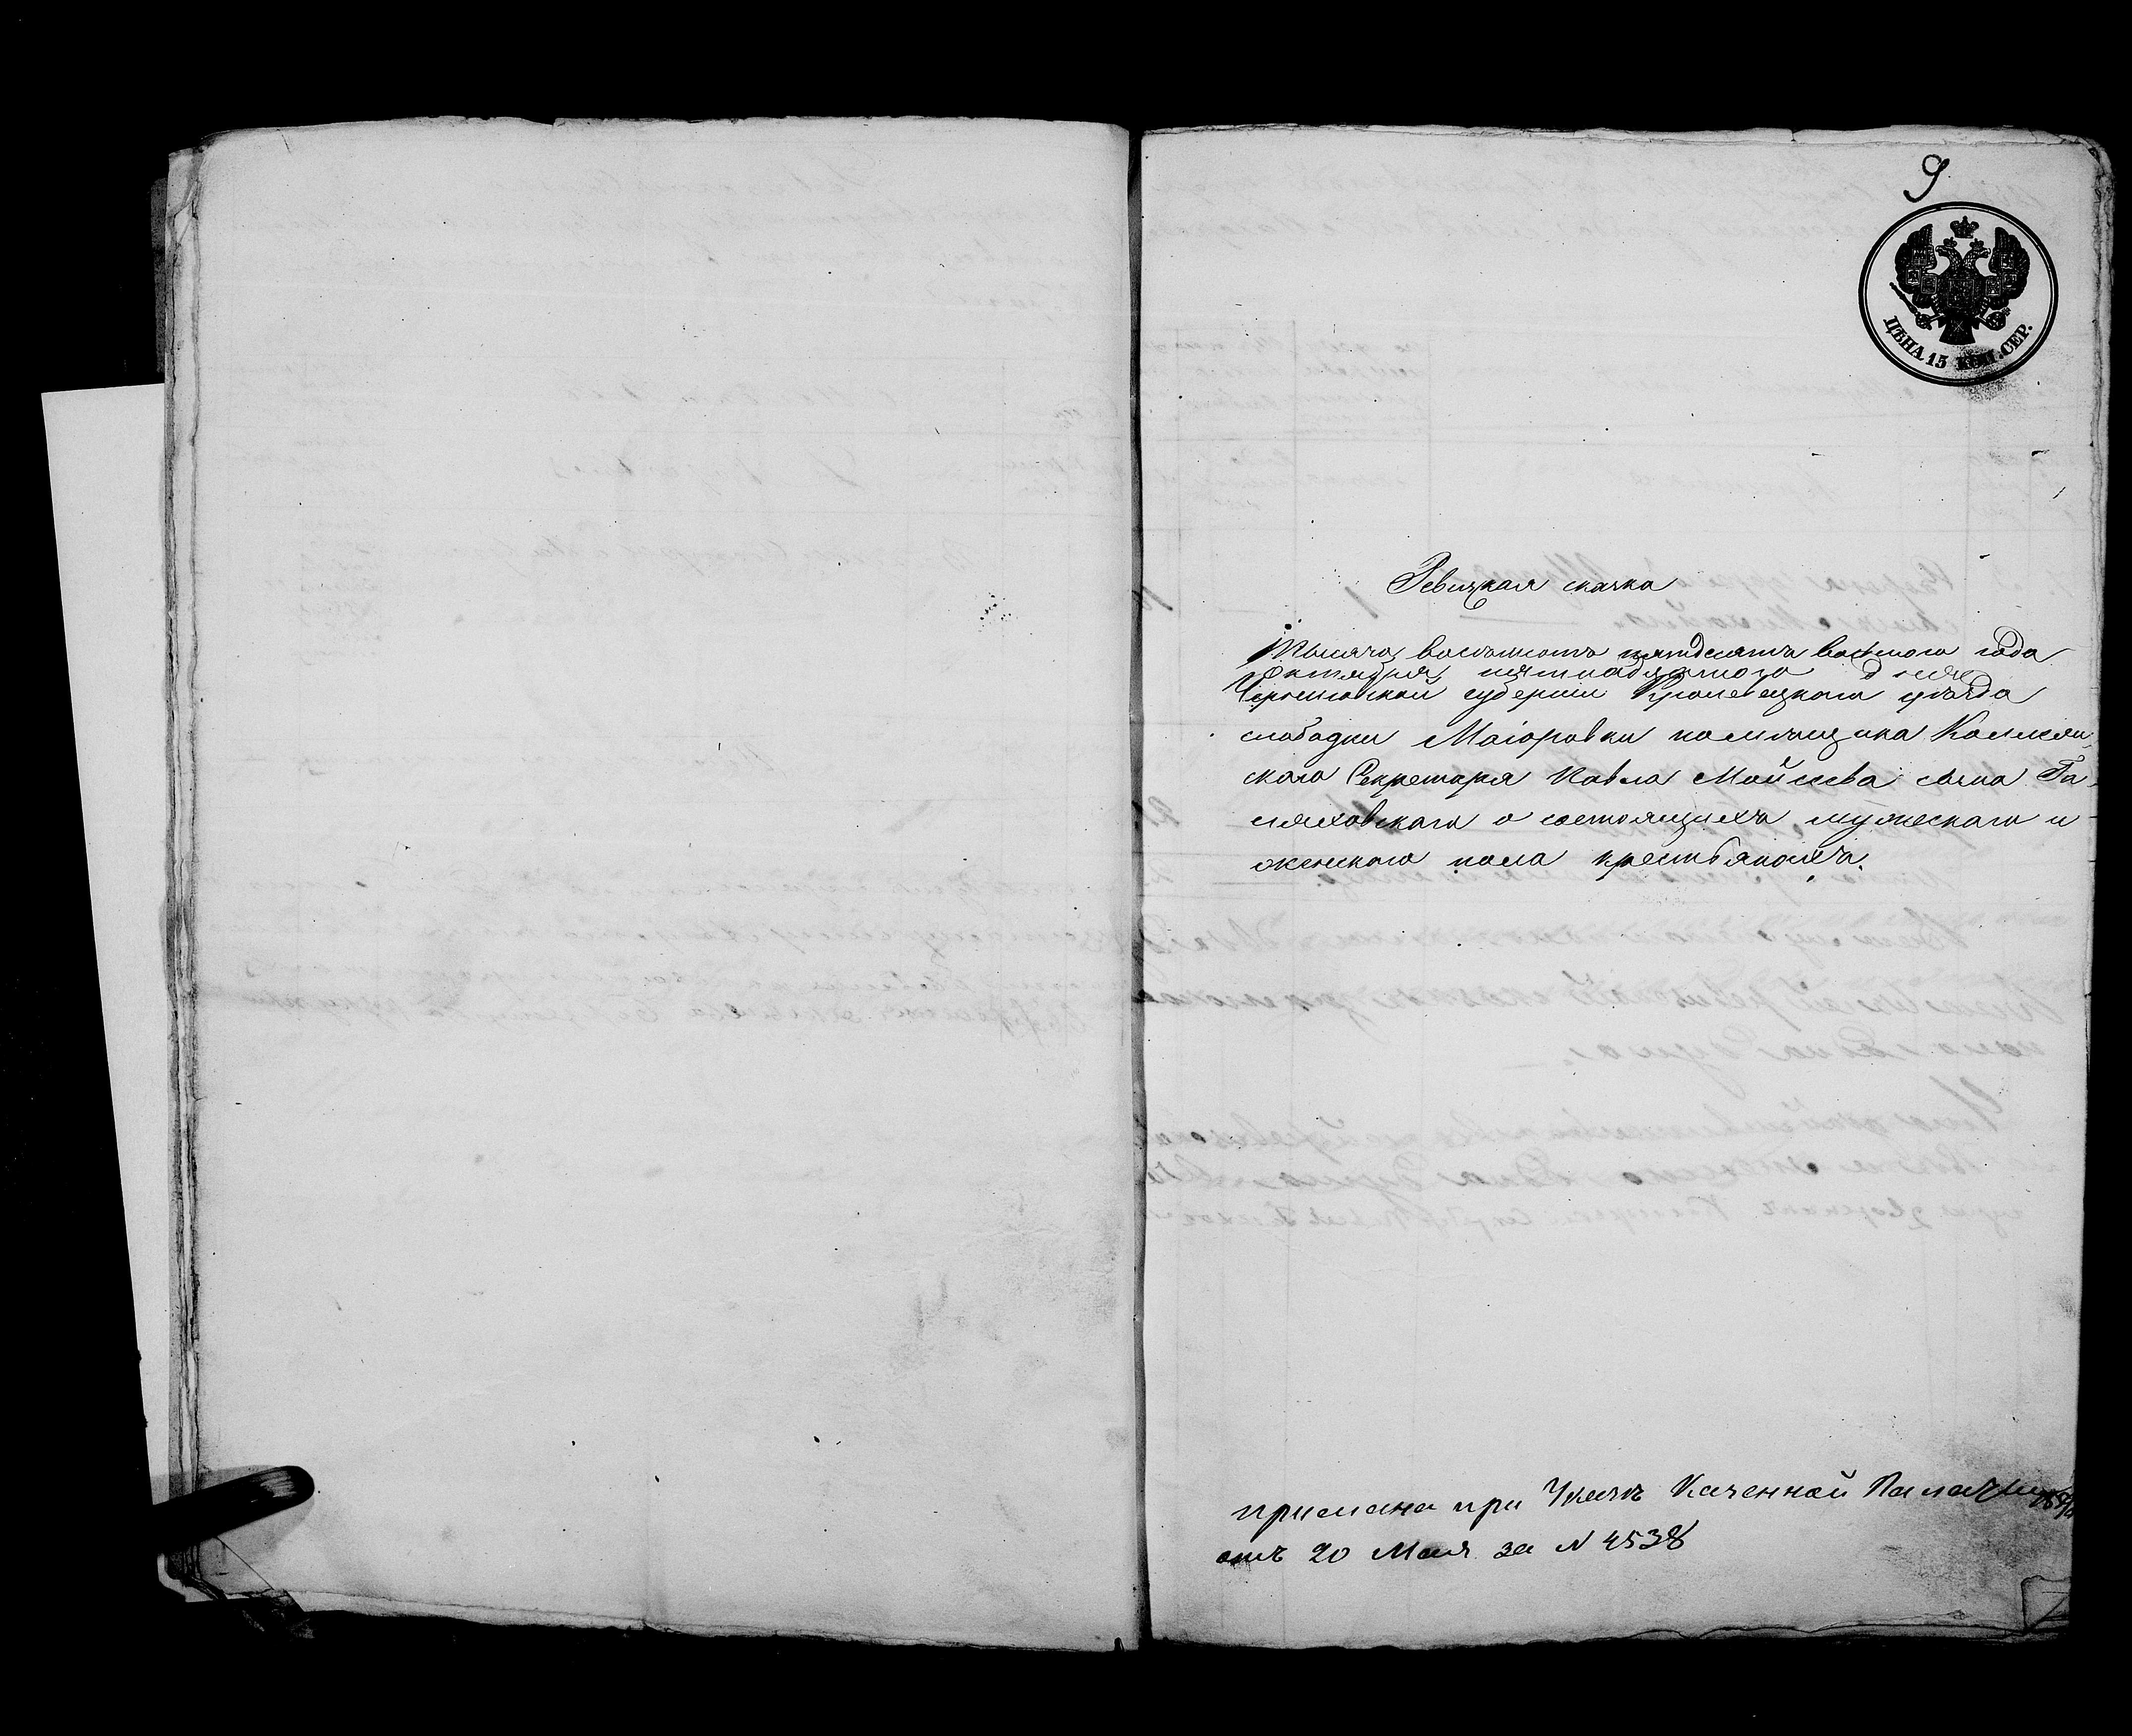 9
ЦѢНА 15 КОП. СЕР.
Ревизкая сказка
Тысяча восемьсотъ пятдесятъ восмого года
Октября пятнадцятого дня
Черниговской губернии Кролевецкого уѣзда
слободки Маіоровки помѣщика Коллежи-
ского Секретаря Павла Мойсеева сына
о состоящихъ мужескаго и
женского пола крестьянахъ.
прислана при Указѣ Казенной Палаты
отъ 20 Мая за N 4538